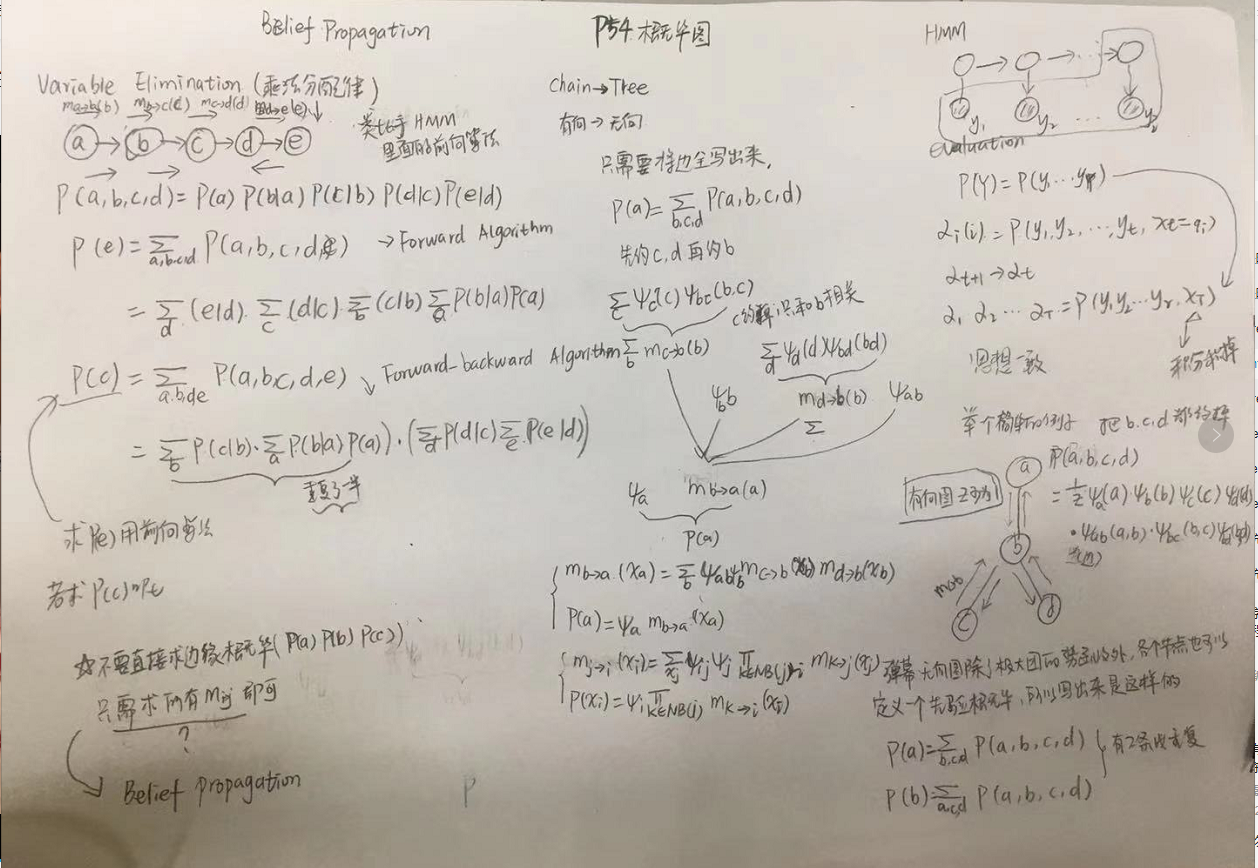 Belief Propagation
P54 概率图
Variable Elimination (乘法分配律)
ma→b(b) mb→c(c) mc→d(d) md→e(e)
a → b → c → d → e
类比于 HMM
里面的前向算法
P(a,b,c,d)= P(a) P(b|a) P(c|b) P(d|c) P(e|d)
P(e) = ∑a,b,c,d P(a,b,c,d,e) → Forward Algorithm
= ∑d (e|d) · ∑c (d|c) · ∑b (c|b) ∑a P(b|a)P(a)
P(c) = ∑a,b,d,e P(a,b,c,d,e) ↘ Forward-backward Algorithm
= ∑b P(c|b)·∑a P(b|a) P(a)) · (∑d P(d|c) ∑e P(e|d))
重复了一半
求P(e)用前向算法
若求 P(c)
☆不要直接求边缘概率(P(a) P(b) P(c))
只需求所有 mij 即可
?
Belief Propagation
chain→Tree
有向→无向
只需要将边全写出来,
P(a)= ∑b,c,d P(a,b,c,d)
先约c,d 再约b
∑ ψc(c) ψbc(b,c)
只和b相关
∑b mc→b(b)
∑d ψd(d) ψbd(bd)
ψb
md→b(b)
ψab
∑
ψa mb→a(a)
P(a)
mb→a(xa) = ∑b ψab ψb mc→b(xb) md→b(xb)
P(a) = ψa mb→a(xa)
mj→i(xi)=∑xj ψij ψj ∏K∈NB(j)\i mK→j(xj)
P(xi)=ψi ∏K∈NB(i) mK→i(xi)
HMM
y1 y2 ...
evaluation
P(Y) = P(y1...yT)
αt(i) = P(y1,y2,...,yt, xt=qi)
αt+1→αt
α1 α2 ... αT = P(y1y2...yT, xT)
思想一致
积分积掉
举个简单的例子 把 b.c,d 都约掉
有向图 Z 为1
a
b
c
d
mcb
P(a,b,c,d)
= 1/Z ψa(a) ψb(b) ψc(c) ψd(d)
· ψab(a,b)·ψbc(b,c) ψbd(b,d)
弹幕 无向图除了极大团的势函数外,各个节点也可以
定义一个先验概率,所以写出来是这样的
P(a)=∑b,c,d P(a,b,c,d)
有2条边重复
P(b)=∑a,c,d P(a,b,c,d)
P